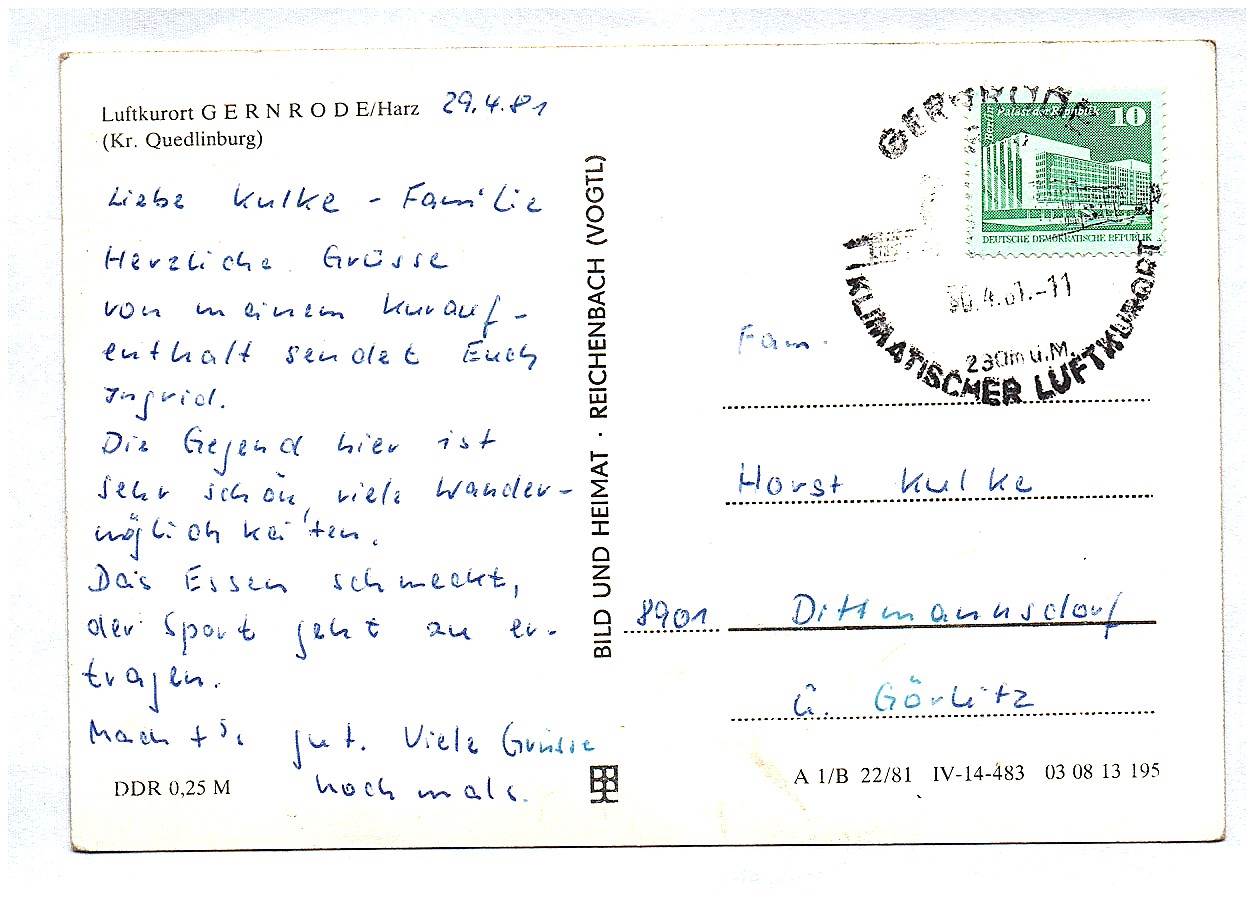 Luftkurort GERNRODE/Harz 29.4.81
(Kr. Quedlinburg)
Liebe Kulke - Familie
Herzliche Grüsse
von meinem Kurauf-
enthalt sendet Euch
Ingrid.
Die Gegend hier ist
sehr schön, viele Wander-
möglichkeiten.
Das Essen schmeckt,
der Sport geht zu er-
tragen.
Macht's gut. Viele Grüsse
nochmals.
DDR 0,25 M
BILD UND HEIMAT · REICHENBACH (VOGTL)
GERNRODE
30.4.81.-11
230m ü.M.
KLIMATISCHER LUFTKURORT
Berlin Palast der Republik
10
DEUTSCHE DEMOKRATISCHE REPUBLIK
Fam.
Horst Kulke
8901 Dittmannsdorf
ü. Görlitz
A 1/B 22/81 IV-14-483 03 08 13 195